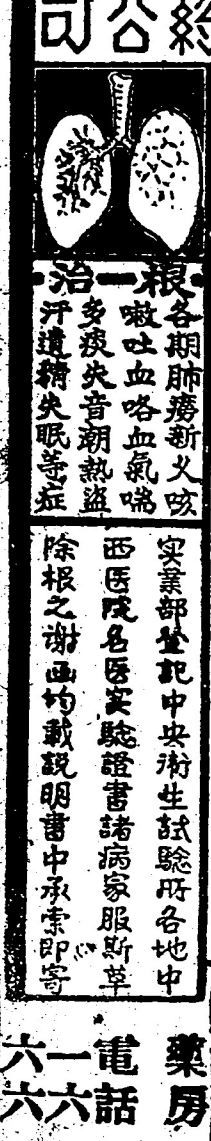 公司
根一治
各期肺癆新久咳
嗽吐血咯血氣喘
多痰失音潮熱盜
汗遺精失眠等症
实業部登記中央衛生試驗所各地中
西医院名医实驗證書諸病家服斯草
除根之谢函均載説明書中承索即寄
藥房
電話
一六
六六